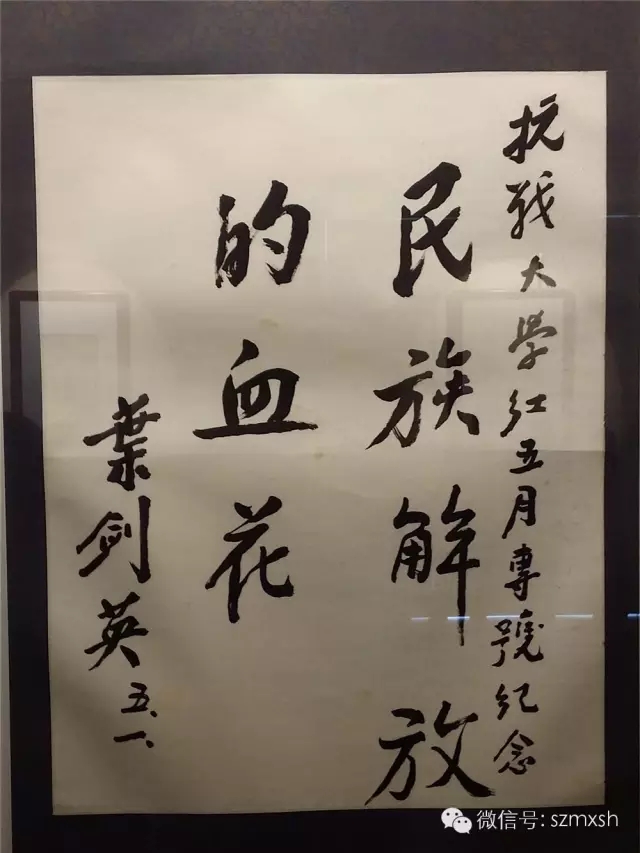 抗战大學红五月專號纪念
民族解放
的血花
葉劍英
五.一.
微信号: szmxsh